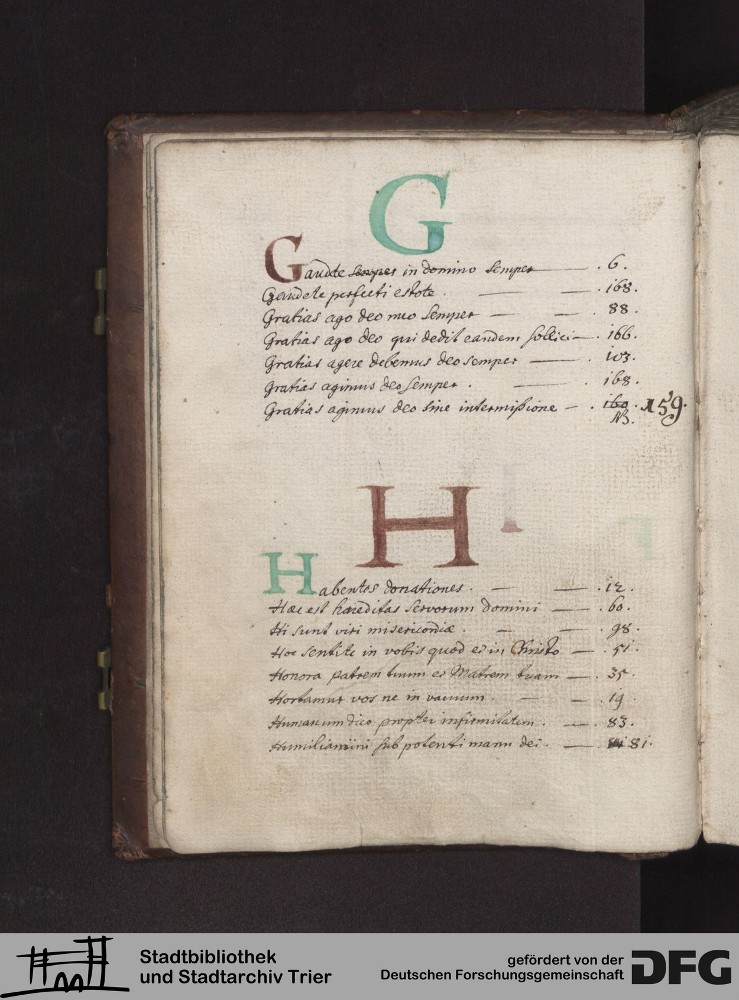 G
Gaudete semper in domino semper . 6 .
Gaudete perfecti estote . . 168 .
Gratias ago deo meo semper . 88 .
Gratias ago deo qui dedit eandem sollici . 166 .
Gratias agere debemus deo semper . 103 .
Gratias agimus deo semper . . 168 .
Gratias agimus deo sine intermißione . 160 . 159 .
NB.
H
Habentes donationes . . 12 .
Hæc est hæreditas servorum domini . 60 .
Hi sunt viri misericordiæ . . 98 .
Hoc sentite in vobis quod et in Christo . 51 .
Honora patrem tuum et Matrem tuam . 35 .
Hortamur vos ne in vacuum . . 19 .
Humanum dico propter infirmitatem . . 83 .
Humiliamini sub potenti manu dei . 81 .
Stadtbibliothek
und Stadtarchiv Trier
gefördert von der
Deutschen Forschungsgemeinschaft
DFG